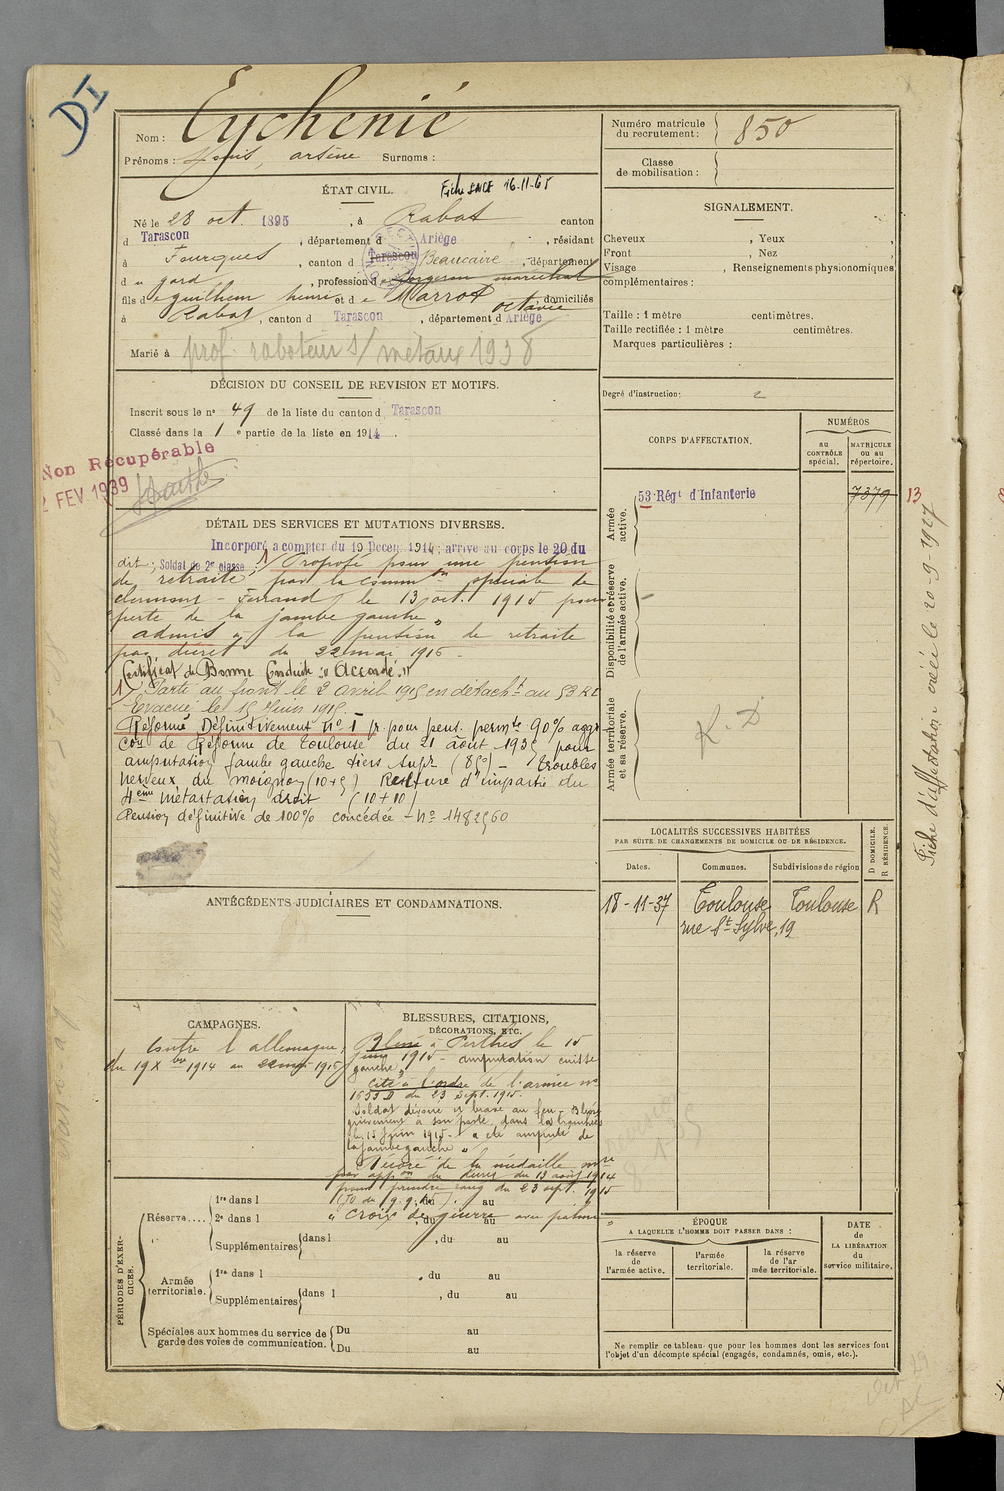 DI
Nom : Eychenié
Prénoms : Louis, arsène Surnoms :
ÉTAT CIVIL.
Fiche SNCF 16-11-65
Né le 28 oct. 1895, à Rabat canton
d Tarascon, département d Ariège, résidant
à Fourques, canton d Tarascon Beaucaire, département
d u gard, profession d e forgeron maréchal
fils d e guilhem henri et d e Marrot octavie domiciliés
à Rabat, canton d Tarascon, département d Ariège
Marié à
prof. raboteur s/ métaux 1938
DÉCISION DU CONSEIL DE REVISION ET MOTIFS.
Inscrit sous le n° 49 de la liste du canton d Tarascon
Classé dans la 1 e partie de la liste en 1914.
Non Récupérable
2 FEV. 1939
DÉTAIL DES SERVICES ET MUTATIONS DIVERSES.
Incorporé a compter du 19 Decem. 1914; arrivé au corps le 20 du
dit; Soldat de 2e classe; 1) Proposé pour une pension
de retraite par la Common spéciale de
clermont-Ferrand le 13 oct. 1915 pour
"perte de la jambe gauche"
admis à la pension de retraite
par décret du 22 mai 1916 -
Certificat de Bonne Conduite "Accordé"
1) Parti au front le 2 avril 1915 en détacht au 53 RI
Evacué le 15 Juin 1915.
Réformé Définitivement N° 1 pr. pour pens. permte 90% aggr
Con de Réforme de Toulouse du 21 août 1935 pour
amputation jambe gauche tiers supr (85%) - troubles
nerveux du moignon (10+5) du
4ème métatarsien droit (10+10)
Pension définitive de 100% concédée - N° 1482560
ANTÉCÉDENTS JUDICIAIRES ET CONDAMNATIONS.
CAMPAGNES.
Contre l'allemagne,
du 19 Xbre 1914 au 22 mai 1916
BLESSURES, CITATIONS,
DÉCORATIONS, ETC.
Blessé à Perthes le 15
juin 1915 - amputation cuisse
gauche"
Cité à l'ordre de l'armée n°
1633 D du 23 Sept. 1915.
Soldat dévoué et brave au feu - Blessé
grièvement à son poste dans les tranchées
le 15 Juin 1915 - a été amputé de
la jambe gauche"
Décoré de la médaille mre
par appon du décret du 13 août 1914
pour prendre rang du 23 sept. 1915
"Croix de guerre avec palme"
PÉRIODES D'EXERCICES.
Réserve.... 1re dans l, du au
2e dans l, du au
Supplémentaires dans l, du au
Armée territoriale. 1re dans l, du au
Supplémentaires dans l, du au
Spéciales aux hommes du service de garde des voies de communication. Du au
Du au
Numéro matricule du recrutement : 850
Classe de mobilisation :
SIGNALEMENT.
Cheveux, Yeux,
Front, Nez,
Visage, Renseignements physionomiques
complémentaires :
Taille : 1 mètre centimètres.
Taille rectifiée : 1 mètre centimètres.
Marques particulières :
Degré d'instruction: 2
CORPS D'AFFECTATION.
NUMÉROS
au CONTRÔLE spécial.
MATRICULE ou au répertoire.
Armée active.
53e Régt d'Infanterie
7379
13
Disponibilité et réserve de l'armée active.
Armée territoriale et sa réserve.
K. D
Fiche d'affectation créée le 20-9-1927
LOCALITÉS SUCCESSIVES HABITÉES
PAR SUITE DE CHANGEMENTS DE DOMICILE OU DE RÉSIDENCE.
D DOMICILE.
R RÉSIDENCE.
Dates. Communes. Subdivisions de région
18-11-37 Toulouse Toulouse R
rue St Sylve, 19
ÉPOQUE
A LAQUELLE L'HOMME DOIT PASSER DANS :
la réserve de l'armée active.
l'armée territoriale.
la réserve de l'ar mée territoriale.
DATE de LA LIBÉRATION du service militaire.
Ne remplir ce tableau que pour les hommes dont les services font
l'objet d'un décompte spécial (engagés, condamnés, omis, etc.).